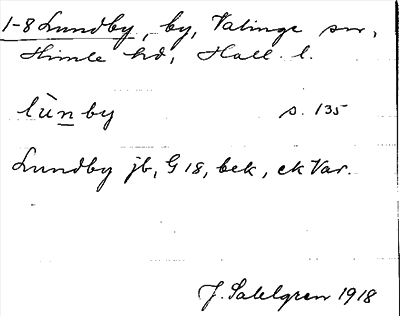 1-8 Lundby, by, Valinge sn,
Himle hd, Hall. l.
lùnby s. 135
Lundby jb, G 18, bek, ek Var.
J. Sahlgren 1918